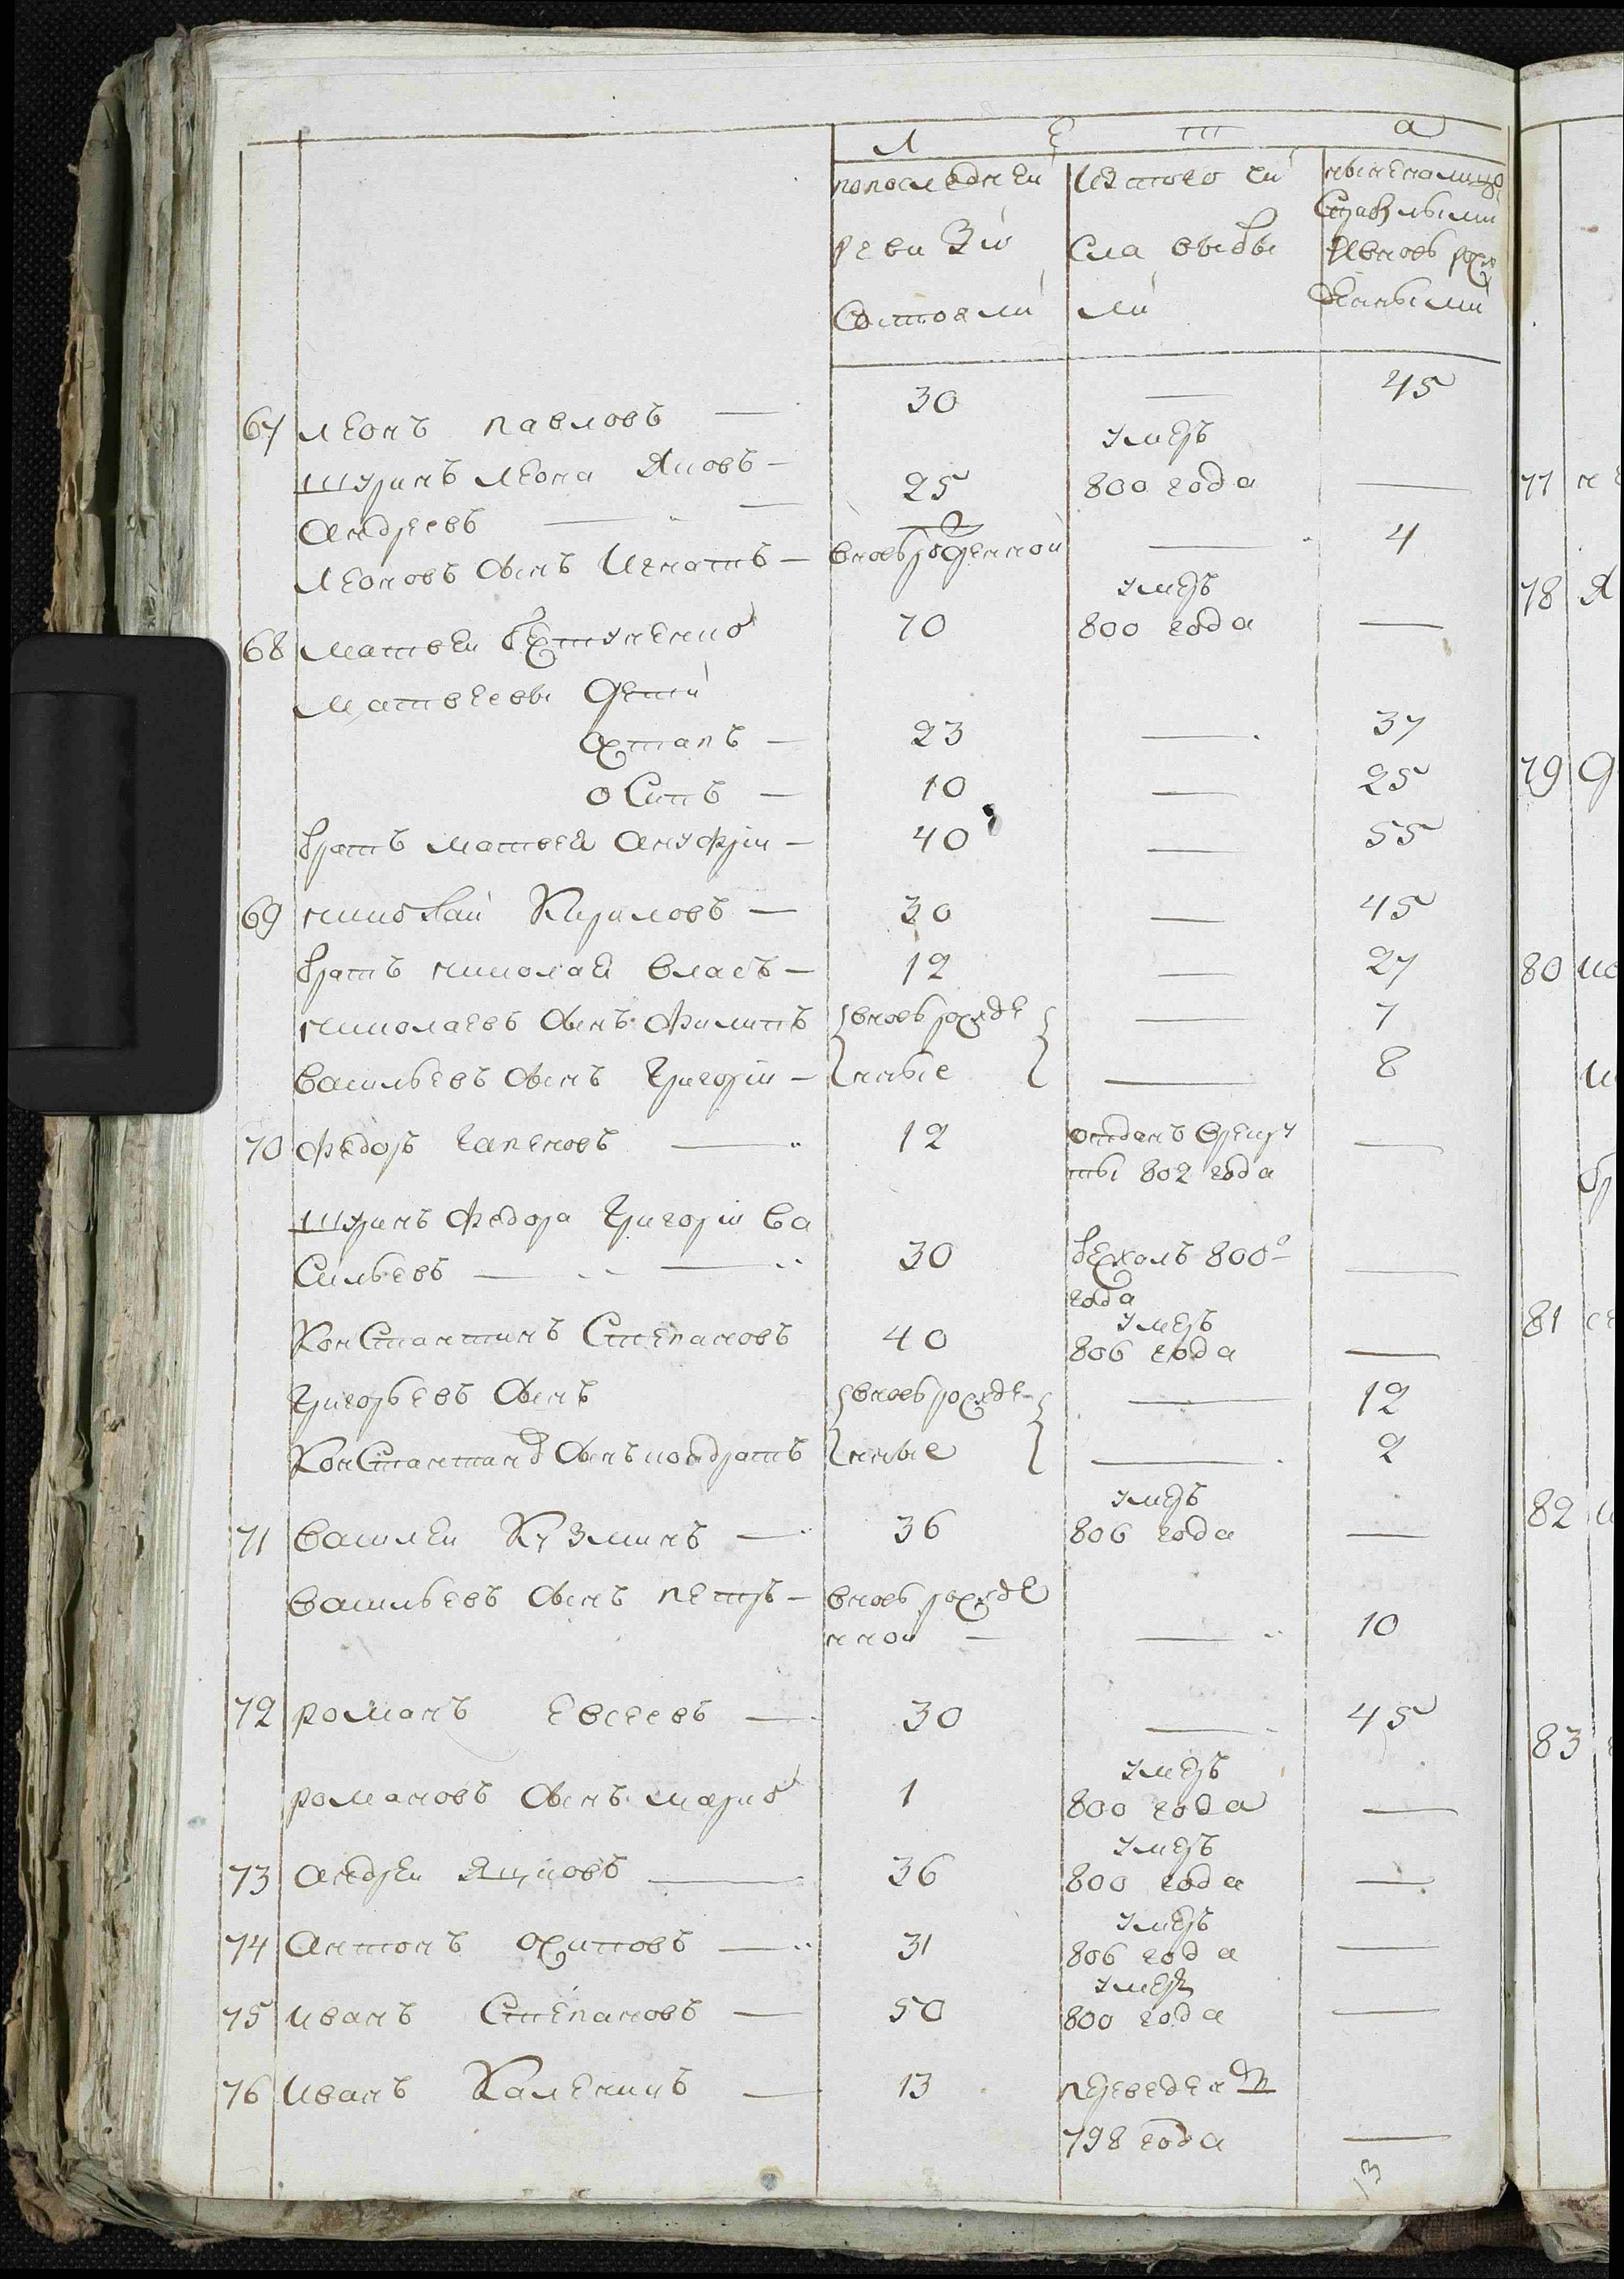 Л Е Т А
попоследней | изтого чи | ныне на лицо
ревизіи | сла выбы | с прибылыми
состояли | ли | и вновь рож
денными
67 Леонъ Павловъ — 30 — 45
Шуринъ Леона Яковъ — умеръ
Андреевъ — 25 800 года —
Леоновъ сынъ Игнатъ — вновьрожденной — 4
умеръ
68 Матвей 70 800 года —
Матвеевы дети
Остапъ — 23 — 37
Осипъ — 10 — 25
братъ Матвея Ануфрій — 40 — 55
69 Николай Кириловъ — 30 — 45
братъ Николая Власъ — 12 — 27
Николаевъ сынъ Филипъ вновь рожде — 7
Васильевъ сынъ Григорій — нные — 8
70 Федоръ Гапеновъ — 12 отданъ врекру —
ты 802 года
Шуринъ Федора Григорій Ва
сильевъ — 30 бежалъ 800го —
года
умеръ
Константинъ Степановъ 40 806 года —
Григорьевъ сынъ вновь рожде — 12
Константинов сынъ Кондратъ нные — 2
умеръ
71 Василей Кузминъ — 36 806 года —
Васильевъ сынъ Петръ — вновь рожде
нной — — 10
72 Романъ Евсеевъ — 30 — 45
умеръ
Романовъ сынъ Марко 1 800 года —
умеръ
73 Андрей Яцковъ — 36 800 года —
умеръ
74 Антонъ Осиповъ — 31 806 года —
умеръ
75 Иванъ Степановъ — 50 800 года —
76 Иванъ Каленикъ — 13 переведен
798 года —
13
77
78
79
80
81
82
83